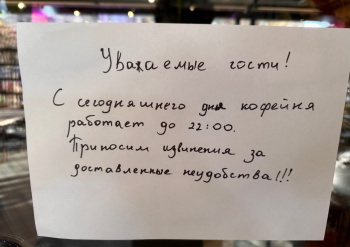 Уважаемые гости!
С сегодняшнего дня кофейня
работает до 22:00.
Приносим извинения за
доставленные неудобства!!!